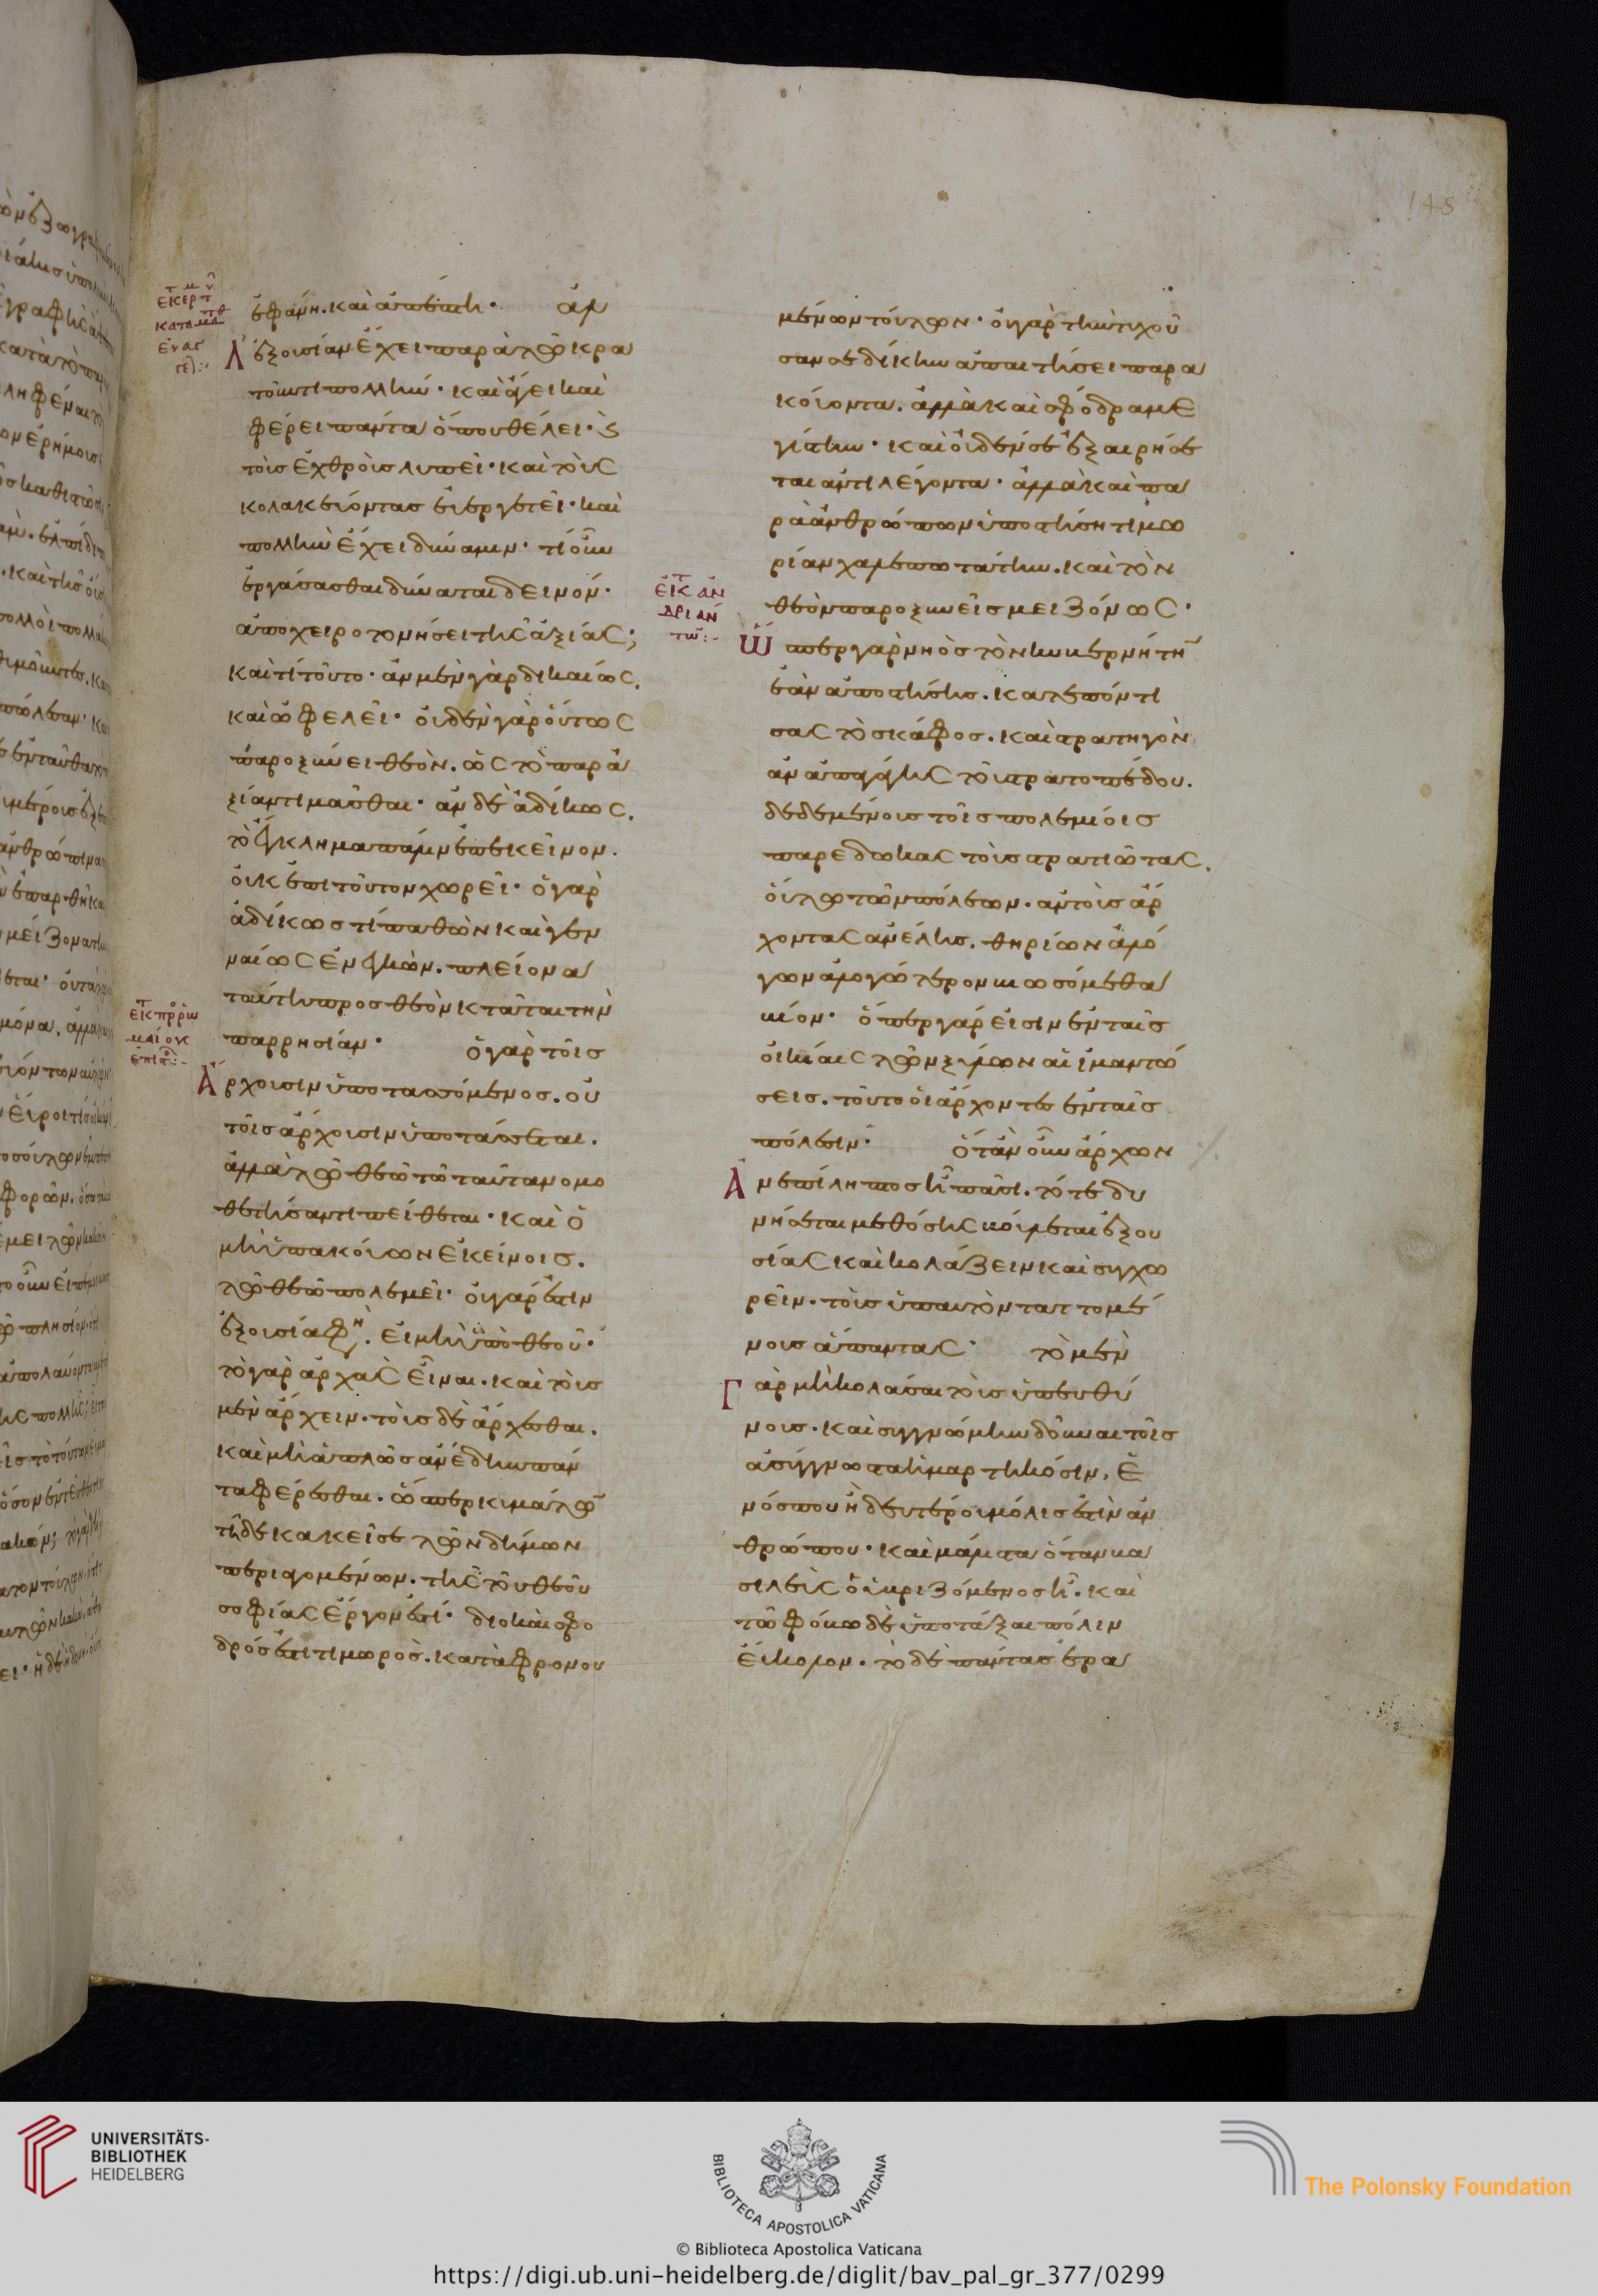 ἐφάνη. καὶ ἀπέστη· ἀλ
Λ' ἐξουσίαν ἔχει παρὰ τῷ κρα
τοῦντι πολλήν· καὶ ἄγει καὶ
φέρει πάντα ὅπου θέλει· ϗ
τοὺς ἐχθροὺς λυπεῖ· καὶ τοὺς
κολακεύοντας εὐεργετεῖ· καὶ
πολλὴν ἔχει δύναμιν· τί οὖν
ἐργάσασθαι δύναται δεινόν·
ἀποχειροτονήσει τῆς ἀξίας;
καὶ τί τοῦτο· ἂν μὲν γὰρ δικαίως.
καὶ ὠφελεῖ· οὐδὲν γὰρ οὕτως
παροξύνει θεὸν. ὡς τὸ παρ' ἀ
ξίαν τιμᾶσθαι· ἂν δὲ ἀδίκως.
τὸ ἔγκλημα πάλιν ἐπ' ἐκεῖνον.
οὐκ ἐπὶ τοῦτον χωρεῖ· ὁ γὰρ
ἀδίκως τί παθὼν καὶ γεν
ναίως ἐνεγκὼν. πλείονα
ταύτη προς θεὸν κτᾶται τὴν
παρρησίαν· ὁ γὰρ τοῖς
Ἄρχουσιν ὑποτασσόμενος. οὐ
τοῖς ἄρχουσιν ὑποτάσσεται.
ἀλλὰ τῷ θεῷ τῷ ταῦτα νομο
θετήσαντι πείθεται· καὶ ὁ
μὴ ὑπακούων ἐκείνοις.
τῷ θεῷ πολεμεῖ· οὐ γάρ ἐστιν
ἐξουσία φη. εἰ μὴ ὑπὸ θεοῦ·
τὸ γὰρ ἀρχὰς εἶναι. καὶ τοὺς
μὲν ἄρχειν. τοὺς δὲ ἄρχεσθαι.
καὶ μὴ ἁπλῶς ἀνέδην πάν
τα φέρεσθαι. ὥσπερ κυμάτων
τῇδε κακεῖσε τῶν δήμων
περιαγομένων. τῆς τοῦ θεοῦ
σοφίας ἔργον ἐστί· διὸ καὶ σφο
δρός ἐστι τιμωρὸς. καταφρονου
μένων τούτων· οὐ γὰρ τὴν τυχοῦ
σαν σε δίκην ἀπαιτήσει παρα
κούοντα. ἀλλὰ καὶ σφόδρα με
γίστην· καὶ οὐδέν σε ἐξαιρήσε
ται ἀντιλέγοντα· ἀλλὰ καὶ πα
ρὰ ἀνθρώπων ὑποστήση τιμω
ρίαν χαλεπωτάτην. καὶ τὸν
θεὸν παροξυνεῖς μειζόνως·
Ὥσπερ γὰρ νηὸς τὸν κυβερνήτην
ἐὰν ἀποστήσης. κατεπόντι
σας τὸ σκάφος. καὶ στρατηγὸν
ἂν ἀπαγάγης τοῦ στρατοπέδου.
δεδεμένους τοῖς πολεμίοις
παρέδωκας τοὺς στρατιώτας.
οὕτω τῶν πόλεων. ἂν τοὺς ἄρ
χοντας ἀνέλης. θηρίων ἀλό
γων ἀλογώτερον βιωσόμεθα
βίον· ὅπερ γάρ εἰσιν ἐν ταῖς
οἰκίαις τῶν ξύλων αἱ ἱμαντώ
σεις. τοῦτο οἱ ἄρχοντες ἐν ταῖς
πόλεσιν· ὅταν οὖν ἄρχων
Ἀνεπίληπτος ἦ πᾶσι. τότε δυ
νήσεται μεθ' ὅσης βούλεται ἐξου
σίας καὶ κολάζειν καὶ συγχω
ρεῖν. τοὺς ὑπ' αυτὸν ταττομέ
νους ἅπαντας· τὸ μὲν
Γὰρ μὴ κολάσαι τοὺς ὑπευθύ
νους. καὶ συγγνώμην δοῦναι τοῖς
ἀσύγγνωστα ἡμαρτηκόσιν, ἑ
νός που ἢ δευτέρου μόλις ἐστὶν ἀν
θρώπου· καὶ μάλιστα ὅταν βα
σιλεὺς ὁ ὑβριζόμενος ἦ. καὶ
τῷ φόβω δὲ ὑποτάξαι πόλιν
εὔκολον. τὸ δὲ πάντας ἐρα
UNIVERSITÄTS-
BIBLIOTHEK
HEIDELBERG
BIBLIOTECA APOSTOLICA VATICANA
The Polonsky Foundation
© Biblioteca Apostolica Vaticana
https://digi.ub.uni-heidelberg.de/diglit/bav_pal_gr_377/0299